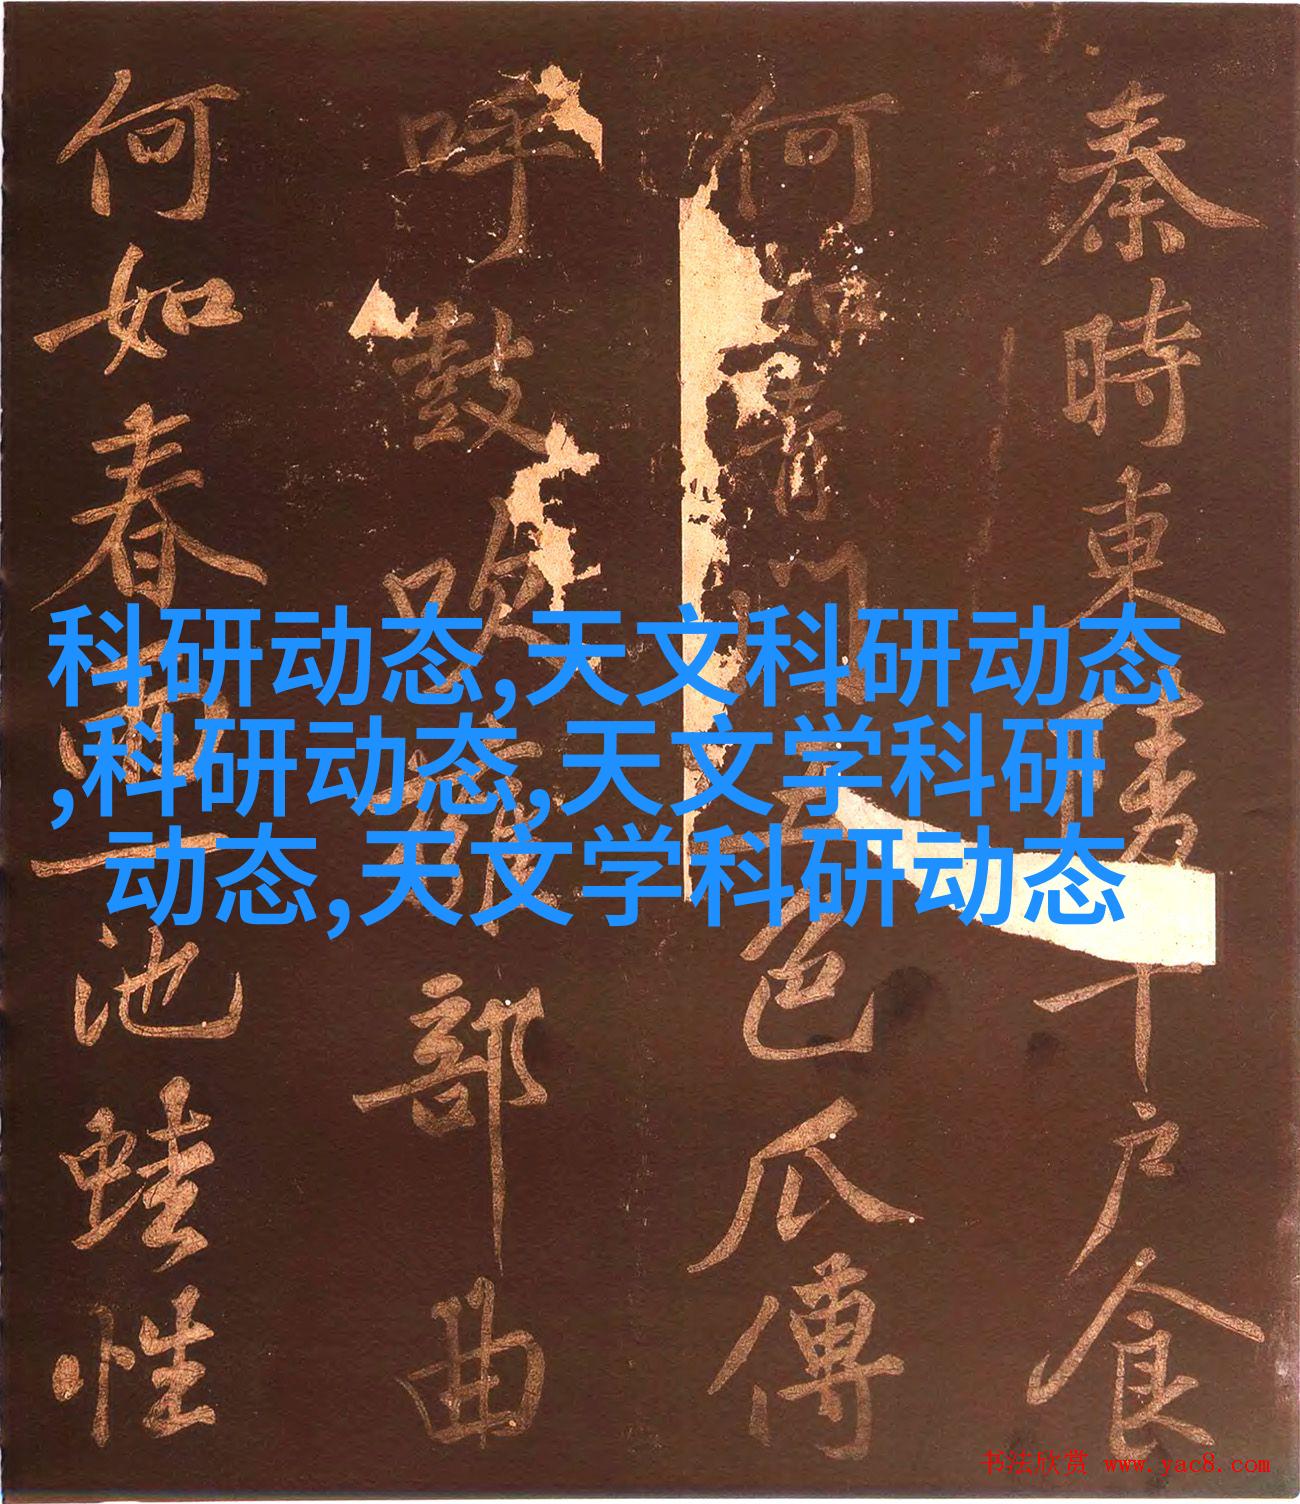 秦時東陵千戶食
何如青門五色瓜傳
呼鼓吹擁部曲
何如春雨一池蛙性
科研动态,天文科研动态
,科研动态,天文学科研
动态,天文学科研动态
书法欣赏 www.yac8.com